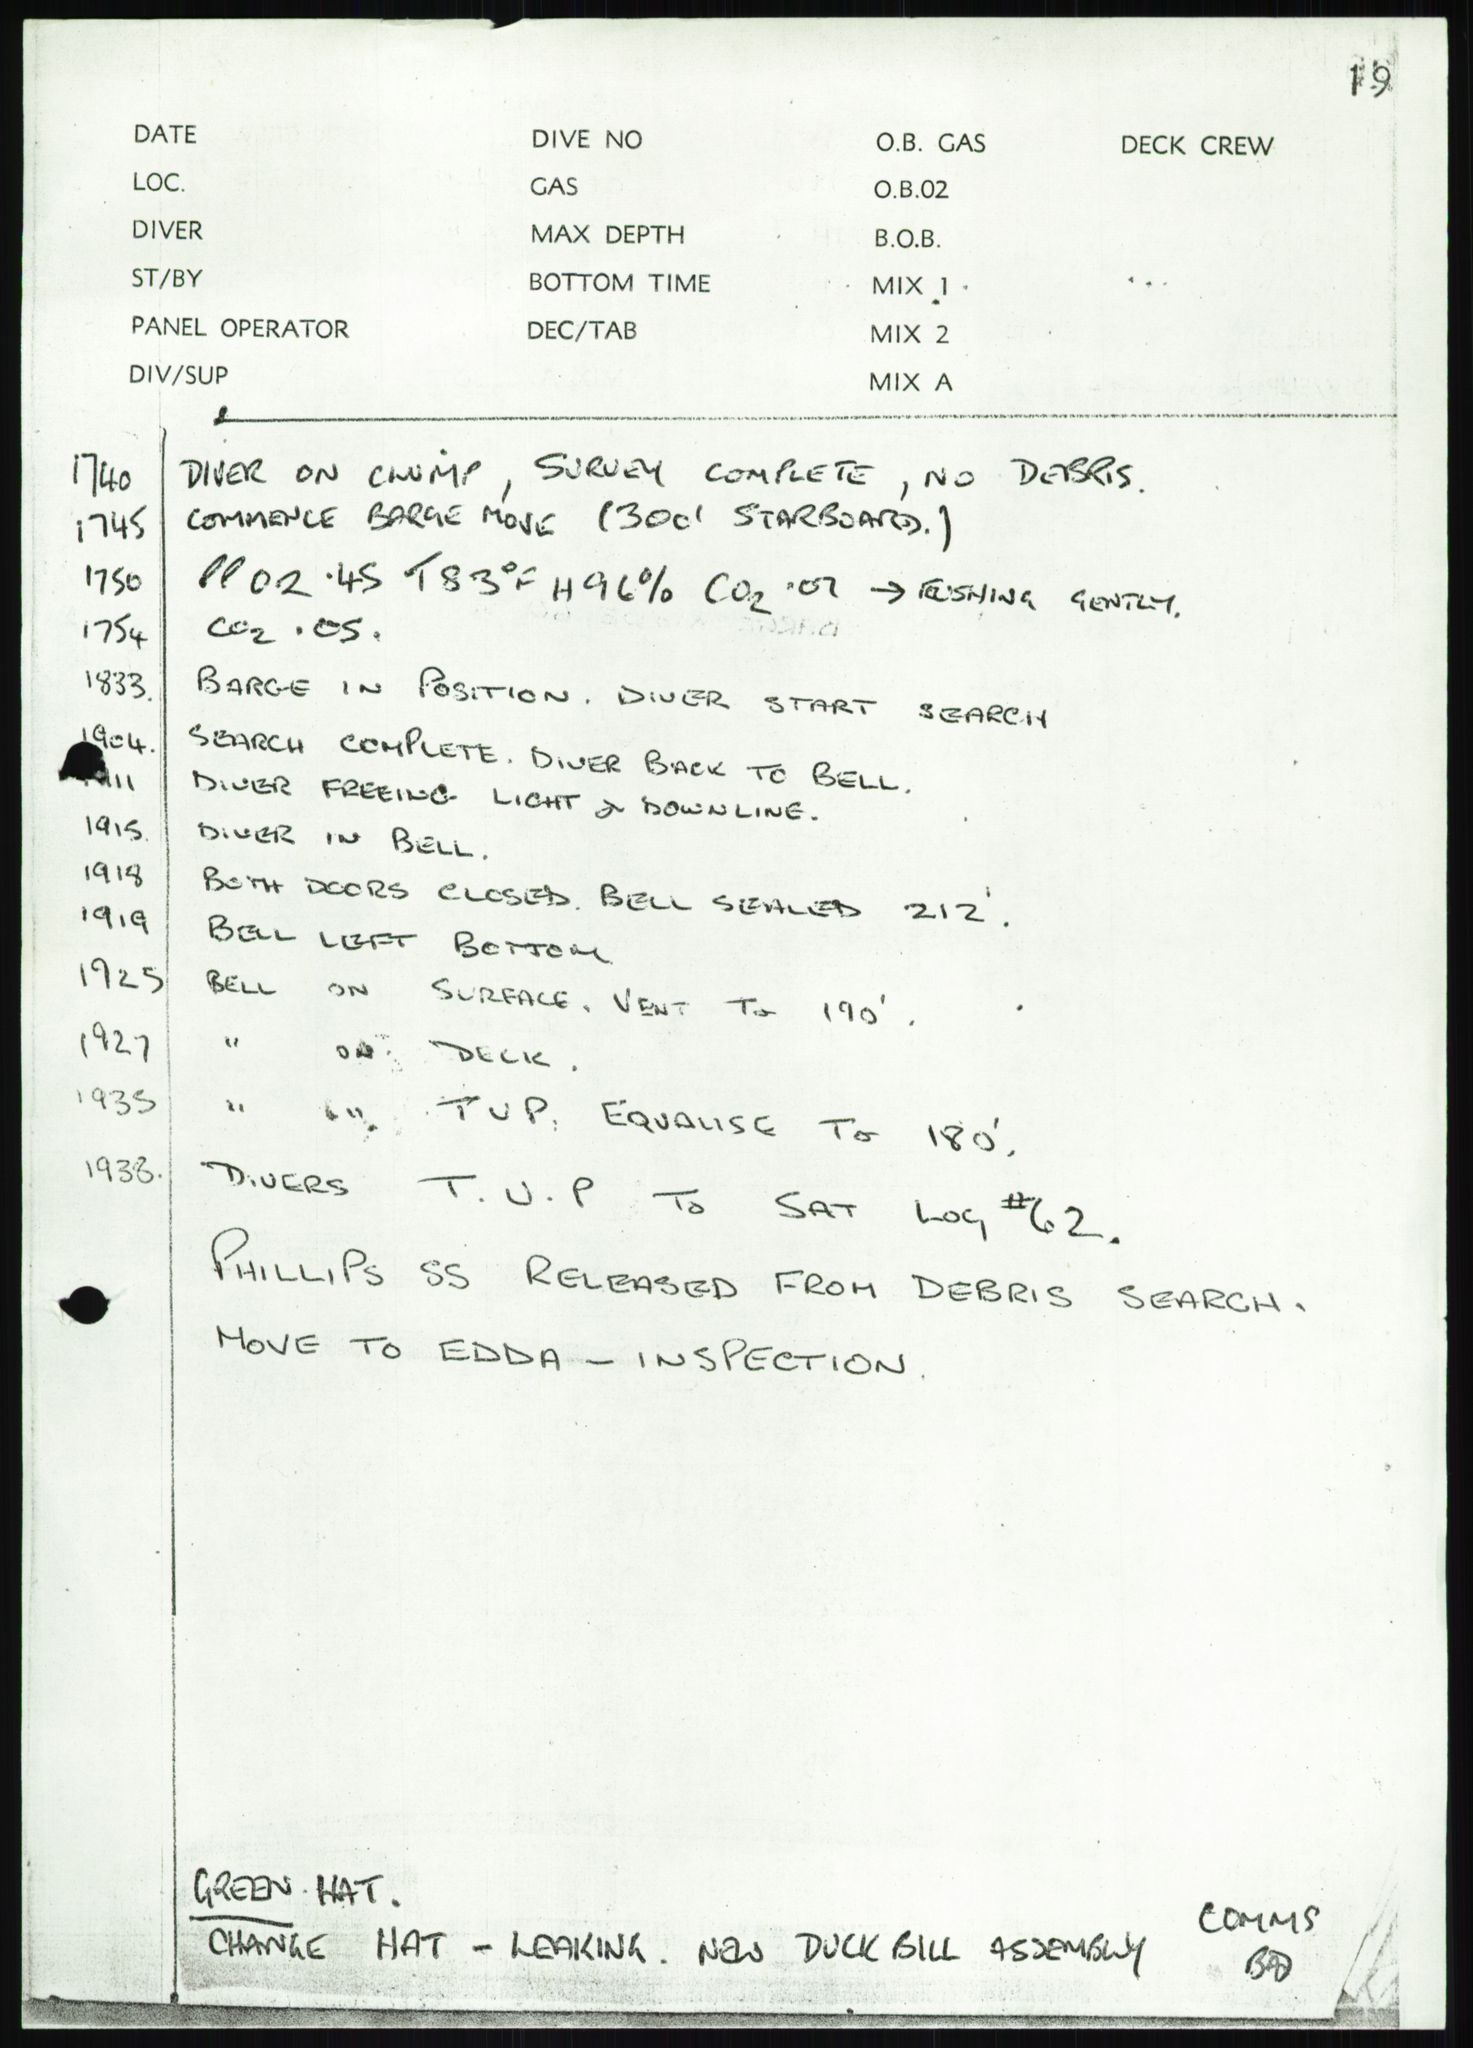 19
DATE DIVE NO O.B. GAS DECK CREW
LOC. GAS O.B.02
DIVER MAX DEPTH B.O.B.
ST/BY BOTTOM TIME MIX 1
PANEL OPERATOR DEC/TAB MIX 2
DIV/SUP MIX A
1740 DIVER ON CLUMP, SURVEY COMPLETE, NO DEBRIS.
1745 COMMENCE BARGE MOVE (300' STARBOARD.)
1750 PPO2 .45 T83°F H96% CO2 .07 → FLUSHING GENTLY.
1754 CO2 .05.
1833. BARGE IN POSITION. DIVER START SEARCH
1904. SEARCH COMPLETE. DIVER BACK TO BELL.
1911 DIVER FREEING LIGHT & DOWNLINE.
1915. DIVER IN BELL.
1918 BOTH DOORS CLOSED. BELL SEALED 212'.
1919 BELL LEFT BOTTOM
1925 BELL ON SURFACE. VENT TO 190'.
1927 " ON DECK.
1935 " " TUP. EQUALISE TO 180'.
1938. DIVERS T.U.P TO SAT LOG #62.
PHILLIPS SS RELEASED FROM DEBRIS SEARCH.
MOVE TO EDDA - INSPECTION.
GREEN HAT.
CHANGE HAT - LEAKING. NEW DUCKBILL ASSEMBLY
COMMS
BAD